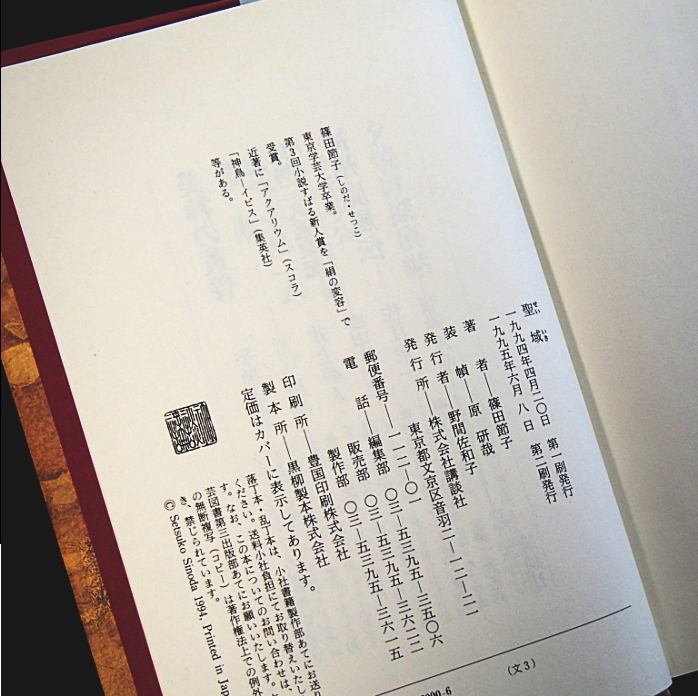 篠田節子(しのだ・せつこ)
東京学芸大学卒業。
第3回小説すばる新人賞を「絹の変容」で
受賞。
近著に「アクアリウム」(スコラ)
「神鳥―イビス」(集英社)
等がある。
聖域
せいいき
一九九四年四月二〇日 第一刷発行
一九九五年六月八日 第二刷発行
著者―篠田節子
装幀―原研哉
発行者―野間佐和子
発行所―株式会社講談社
東京都文京区音羽二―一二―二一
郵便番号―一一二―〇一
電話―編集部 〇三―五三九五―三五〇六
販売部 〇三―五三九五―三六二二
製作部 〇三―五三九五―三六一五
印刷所―豊国印刷株式会社
製本所―黒柳製本株式会社
定価はカバーに表示してあります。
落丁本・乱丁本は、小社書籍製作部あてにお送り
ください。送料小社負担にてお取り替えいたし
す。なお、この本についてのお問い合わせは、
芸図書第三出版部あてにお願いいたします。
の無断複写(コピー)は著作権法上での例外
き、禁じられています。
© Setsuko Sinoda 1994, Printed in Jap
(文3)